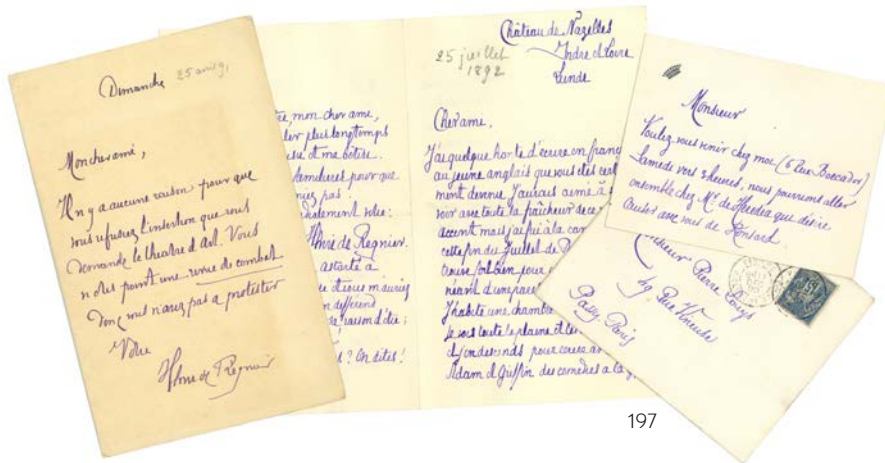 Dimanche 25 avril 91
Mon cher ami,
Il n'y a aucune raison pour que
vous refusiez l'insertion que vous
demande le théatre d'Art. Vous
n'êtes point une revue de combat
donc vous n'avez pas à protester
Votre
Henri de Régnier
mon cher ami,
plus longtemps
et ma bêtise.
pour que
pas.
votre:
Henri de Régnier.
astarté a
raison d'être;
? On dites!
Château de Nazelles
Indre et Loire
Lundi
25 juillet
1892
Cher ami,
J'ai quelque honte d'écrire en franç
au jeune anglais que vous êtes certai
ment devenu. J'aurais aimé à
voir avec toute la fraîcheur de ce
accent mais j'ai fui à la cam
cette fin du Juillet de P
trouve fort bien pour
néant d'une pares
J'habite une chambre
je vois toute la plaine et les
et j'en descends pour causer av
Adam et Griffin des comédies à la g
Monsieur
Voulez vous venir chez moi (6 Rue Boccador)
Samedi vers 5 heures, nous pourrons aller
ensemble chez Mr de Heredia qui désire
causer avec vous de Ronsard.
Monsieur Pierre Louys
49 Rue Vineuse
Passy-Paris
15
197